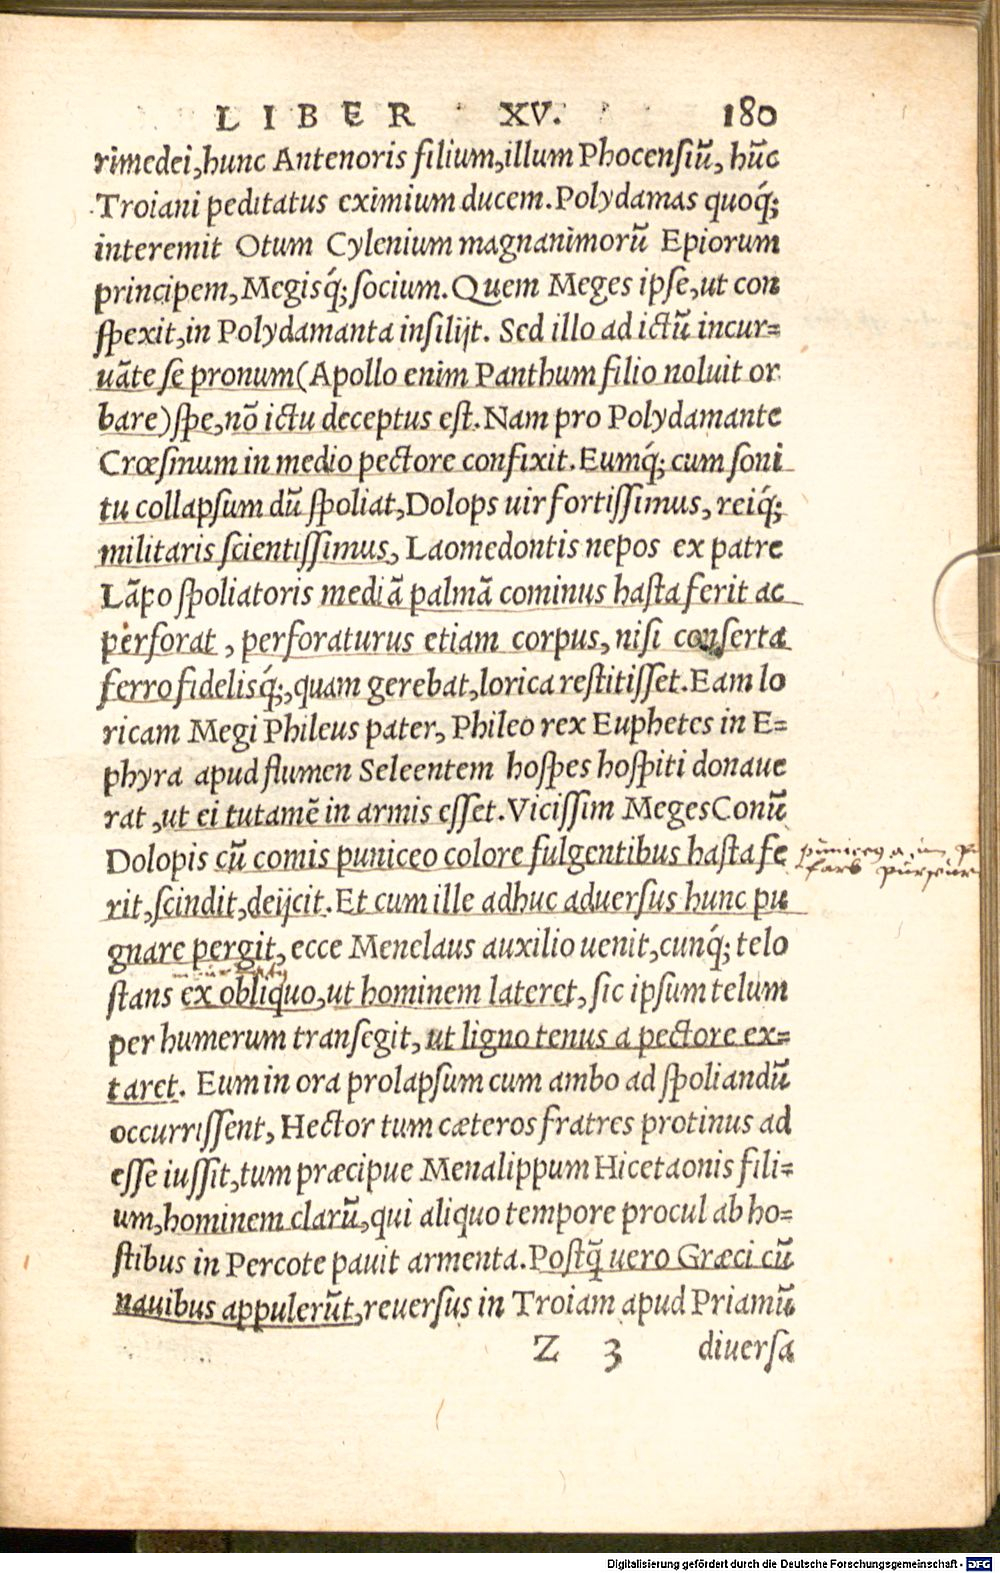 LIBER XV. 180
rimedei,hunc Antenoris filium,illum Phocensiũ, hũc
Troiani peditatus eximium ducem.Polydamas quoq́;
interemit Otum Cylenium magnanimorũ Epiorum
principem,Megisq́;socium.Quem Meges ipse,ut con
spexit,in Polydamanta insilijt. Sed illo ad ictũ incur=
uãte se pronum(Apollo enim Panthum filio noluit or
bare)spe,nõ ictu deceptus est.Nam pro Polydamante
Crœsmum in medio pectore confixit.Eumq́; cum soni
tu collapsum dũ spoliat,Dolops uir fortissimus, reiq́;
militaris scientissimus, Laomedontis nepos ex patre
Lãpo spoliatoris mediã palmã cominus hasta ferit ac
perforat , perforaturus etiam corpus, nisi conserta
ferro fidelisq́;,quam gerebat,lorica restitisset.Eam lo
ricam Megi Phileus pater, Phileo rex Euphetes in E=
phyra apud flumen Seleentem hospes hospiti donaue
rat ,ut ei tutamẽ in armis esset.Vicissim Meges Conũ
Dolopis cũ comis puniceo colore fulgentibus hasta fe
rit,scindit,deijcit.Et cum ille adhuc aduersus hunc pu
gnare pergit, ecce Menelaus auxilio uenit,cunq́; telo
stans ex obliquo,ut hominem lateret,sic ipsum telum
per humerum transegit, ut ligno tenus a pectore ex=
taret. Eum in ora prolapsum cum ambo ad spoliandũ
occurrissent, Hector tum cæteros fratres protinus ad
esse iussit,tum præcipue Menalippum Hicetaonis fili=
um,hominem clarũ,qui aliquo tempore procul ab ho=
stibus in Percote pauit armenta.Postq̃ uero Græci cũ
nauibus appulerũt,reuersus in Troiam apud Priamũ
Z 3 diuersa
Digitalisierung gefördert durch die Deutsche Forschungsgemeinschaft - DFG